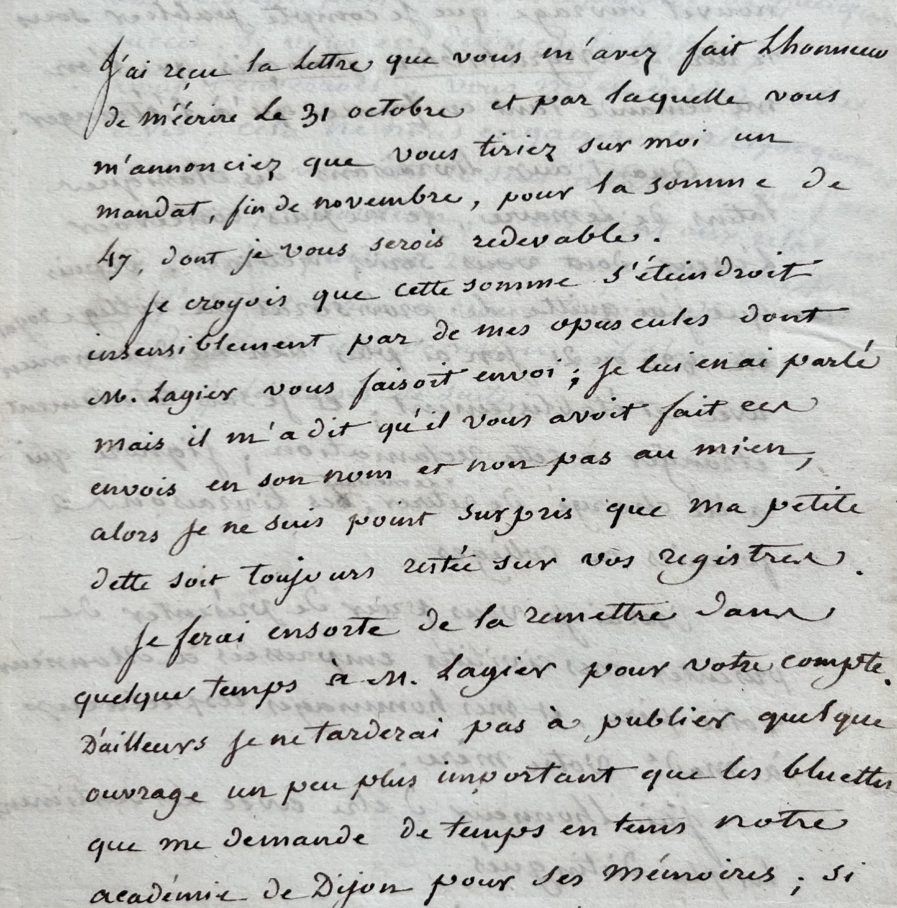 J'ai reçu la Lettre que vous m'avez fait Lhonneur
de m'écrire Le 31 octobre et par laquelle vous
m'annonciez que vous tiriez sur moi un
mandat, fin de novembre, pour la somme de
47, dont je vous serois redevable.
Je croyois que cette somme s'éteindroit
insensiblement par de mes opuscules dont
M. Lagier vous faisoit envoi; Je lui en ai parlé
mais il m'a dit qu'il vous avoit fait ces
envois en son nom et non pas au mien,
alors Je ne suis point surpris que ma petite
dette soit toujours restée sur vos registres.
Je ferai ensorte de la remettre dans
quelque temps à M. Lagier pour votre compte.
D'ailleurs Je ne tarderai pas à publier quelque
ouvrage un peu plus important que les bluettes
que me demande de temps en tems notre
académie de Dijon pour ses Mémoires; si